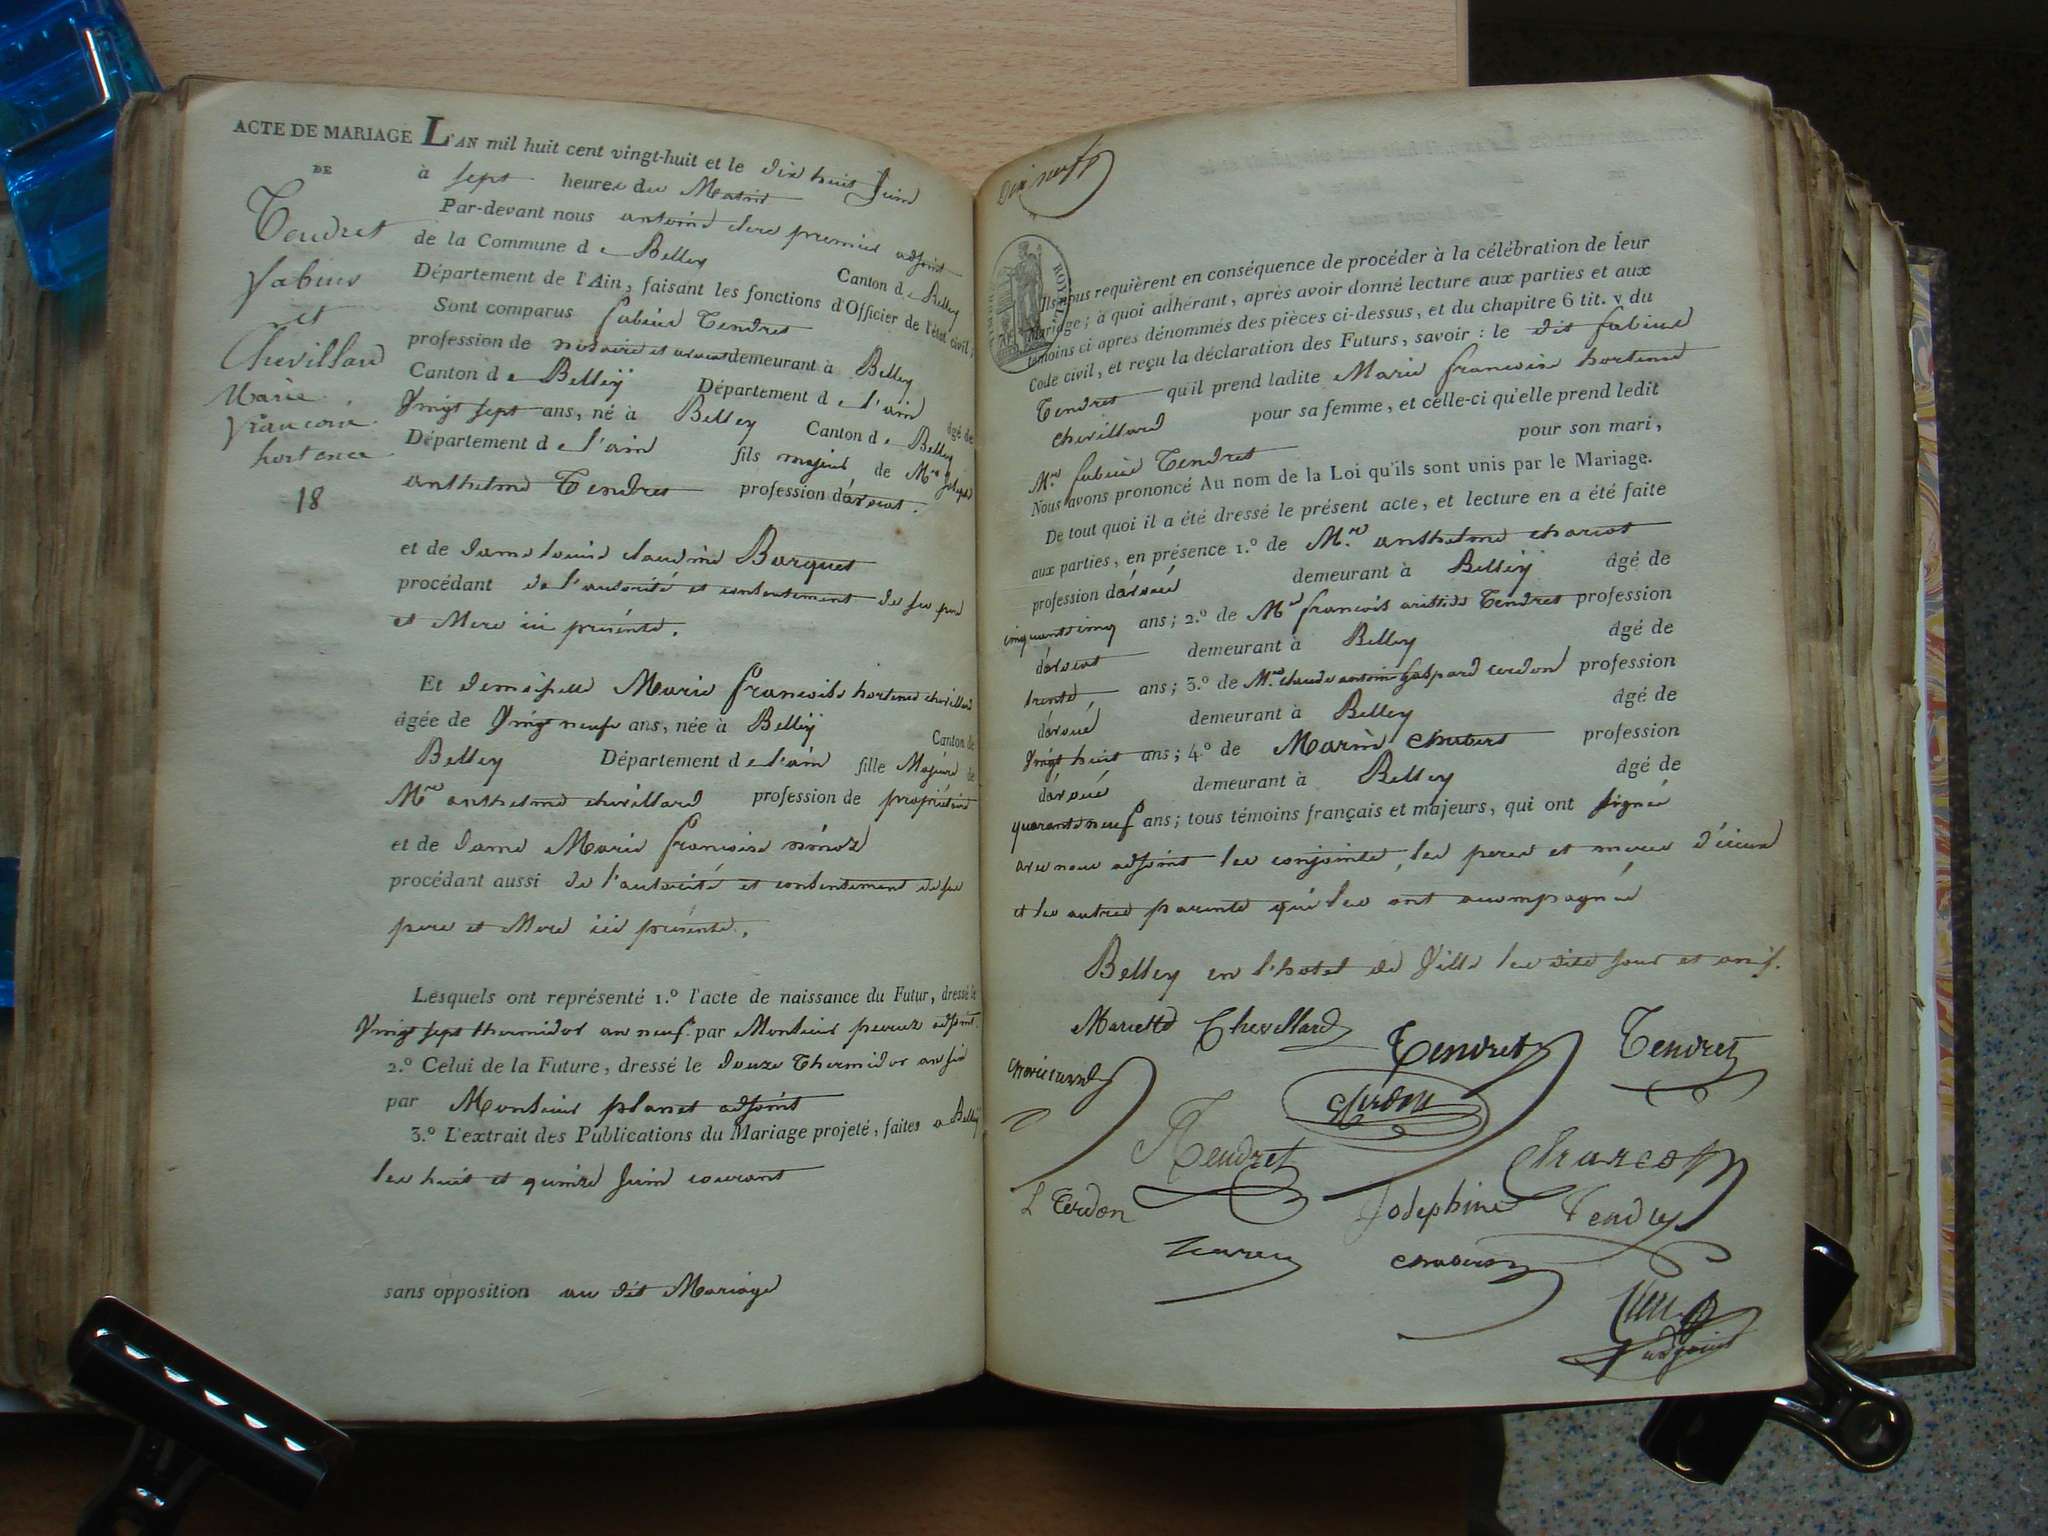 ACTE DE MARIAGE
DE
Tendret
fabius
et
Chevillard
Marie
françoise
hortence
18
L'AN mil huit cent vingt-huit et le dix huit Juin
à sept heures du Matin
Par-devant nous antoine clerc premier adjoint
de la Commune de Belley Canton de Belley
Département de l'Ain, faisant les fonctions d'Officier de l'état civil,
Sont comparus fabius Tendret
profession de notaire et avocat demeurant à Belley
Canton de Belley Département de l'ain âgé de
Vingt sept ans, né à Belley Canton de Belley
Département de l'ain fils majeur de Mre joseph
anthelme Tendret profession d'avocat.
et de dame louise claudine Barquet
procédant de l'autorité et contentement de ses pere
et Mere ici présents.
Et demoiselle Marie françoise hortence chevillard
âgée de Vingt neuf ans, née à Belley Canton de
Belley Département de l'ain fille Majeure de
Mre anthelme chevillard profession de propriétaire
et de dame Marie françoise
procédant aussi de l'autorité et contentement de ses
pere et Mere ici présents.
Lesquels ont représenté 1.º l'acte de naissance du Futur, dressé le
Vingt sept thermidor an neuf par Monsieur adjoint
2.º Celui de la Future, dressé le douze Thermidor an six
par Monsieur planet adjoint
3.º L'extrait des Publications du Mariage projeté, faites a Belley
les huit et quinze Juin courant
sans opposition au dit Mariage
Dix neuf
TIMBRE ROYAL
Ils nous requièrent en conséquence de procéder à la célébration de leur
Mariage; à quoi adhérant, après avoir donné lecture aux parties et aux
témoins ci apres dénommés des pièces ci-dessus, et du chapitre 6 tit. v du
Code civil, et reçu la déclaration des Futurs, savoir: le dit fabius
Tendret qu'il prend ladite Marie francoise hortence
chevillard pour sa femme, et celle-ci qu'elle prend ledit
Mre fabius Tendret pour son mari,
Nous avons prononcé Au nom de la Loi qu'ils sont unis par le Mariage.
De tout quoi il a été dressé le présent acte, et lecture en a été faite
aux parties, en présence 1.º de Mre anthelme charcot
profession d'avoué demeurant à Belley âgé de
cinquante cinq ans; 2.º de Mre françois aristide Tendret profession
d'avocat demeurant à Belley âgé de
trente ans; 3.º de Mre claude antoine gaspard cerdon profession
d'avoué demeurant à Belley âgé de
Vingt huit ans; 4.º de Marin chubert profession
d'avoué demeurant à Belley âgé de
quarante neuf ans; tous témoins français et majeurs, qui ont signés
avec nous adjoint les conjoints, les peres et meres d'iceux
et les autres parents qui les ont acompagnés
Belley en l'hotel de Ville les dits jour et an
Mariette Chevillard Tendret Tendret
Cerdon
Tendret Charcot
L Cerdon Josephine Tendret
adjoint